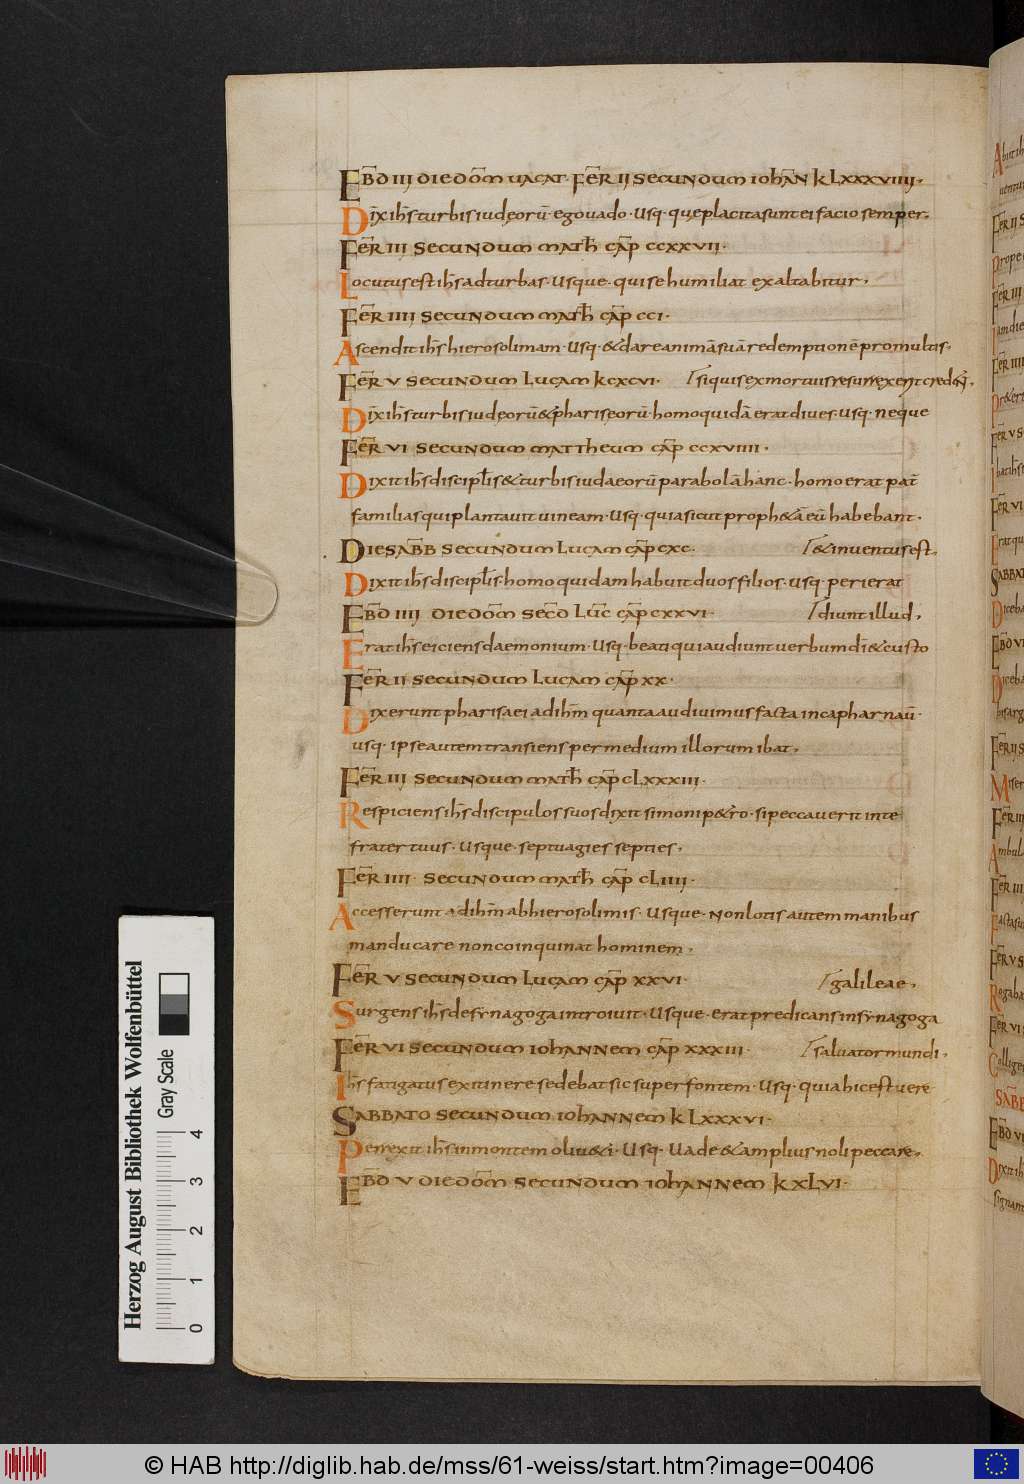 EBD̄ III DIE DOM̄ UACAT· FER̄ II SECUNDUM IOHAN̄ K LXXXVIIII·
Dix̄ ih̄s turbis iudeorū· ego uado· usq· que placita sunt ei facio semper·
FER̄ III SECUNDUM MATH̄ CAP̄ CCXXVII·
Locutus est ih̄s ad turbas· usque· qui se humiliat exaltabitur·
FER̄ IIII SECUNDUM MATH̄ CAP̄ CCI·
Ascendit ih̄s hierosolimam· usq· & dare animā suā redemptionē pro multis·
FER̄ V SECUNDUM LUCAM K CXCVI· si quis ex mortuis resurrexerit
Dix̄ ih̄s turbis iudeorū & phariseorū· homo quidā erat diues· usq· neque
FER̄ VI SECUNDUM MATTHEUM CAP̄ CCXVIIII·
Dixit ih̄s discipl̄is & turbis iudaeorū parabolā hanc· homo erat pat̄
familias qui plantauit uineam· usq· quia sicut proph&ā eū habebant·
DIE SABB̄ SECUNDUM LUCAM CAP̄ CXC· & inuentus est·
Dixit ih̄s discipl̄is· homo quidam habuit duos filios· usq· perierat
EBD̄ IIII DIE DOM̄ SECD̄ LUC̄ CAP̄ CXXVI· diunt illud·
Erat ih̄s eiciens daemonium· usq· beati qui audiunt uerbum dī & custo
FER̄ II SECUNDUM LUCAM CAP̄ XX·
Dixerunt pharisaei ad ihm̄ quanta audiuimus facta in capharnaū·
usq· ipse autem transiens per medium illorum ibat·
FER̄ III SECUNDUM MATH̄ CAP̄ CLXXXIII·
Respiciens ih̄s discipulos suos dixit simoni p&ro· si peccauerit in te
frater tuus· usque· septuagies septies·
FER̄ IIII· SECUNDUM MATH̄ CAP̄ CLIIII·
Accesserunt ad ihm̄ ab hierosolimis· usque· non lotis autem manibus
manducare non coinquinat hominem·
FER̄ V SECUNDUM LUCAM CAP̄ XXVI· galileae·
Surgens ih̄s de synagoga introiuit· usque· erat predicans in synagoga
FER̄ VI SECUNDUM IOHANNEM CAP̄ XXXIII· saluator mundi·
Ih̄s fatigatus ex itinere sedebat sic super fontem· usq· quia hic est uere
SABBATO SECUNDUM IOHANNEM K LXXXVI·
Perrexit ih̄s in montem oliu&i· usq· uade & amplius noli peccare·
EBD̄ V DIE DOM̄ SECUNDUM IOHANNEM K XLVI·
Herzog August Bibliothek Wolfenbüttel
Gray Scale
0 1 2 3 4
© HAB http://diglib.hab.de/mss/61-weiss/start.htm?image=00406